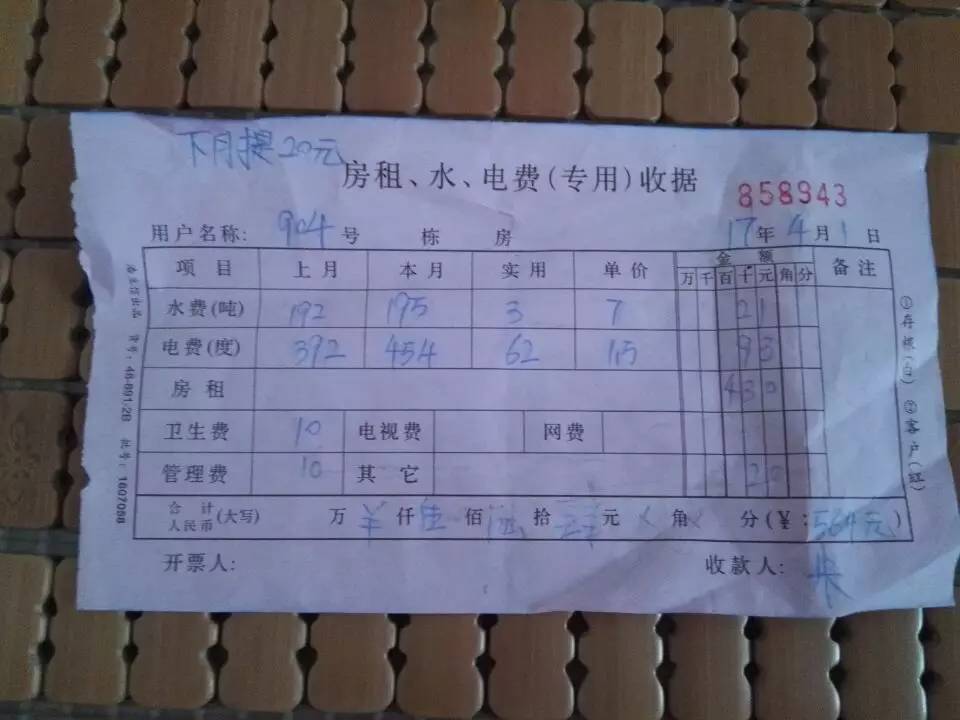 下月提20元
房租、水、电费(专用)收据
858943
用户名称: 904 号 栋 房 17 年 4 月 1 日
项目 上月 本月 实用 单价 金额 备注
万 千 百 十 元 角 分
水费(吨) 192 195 3 7 21
电费(度) 392 454 62 1.5 93
房租 430
卫生费 10 电视费 网费
管理费 10 其它 20
合计人民币(大写) 万 仟 伍 佰 陆 拾 元 角 分(¥:564元)
开票人: 收款人:
①存根(白) ②客户(红)
货号:46-891/2B 批号:1607088